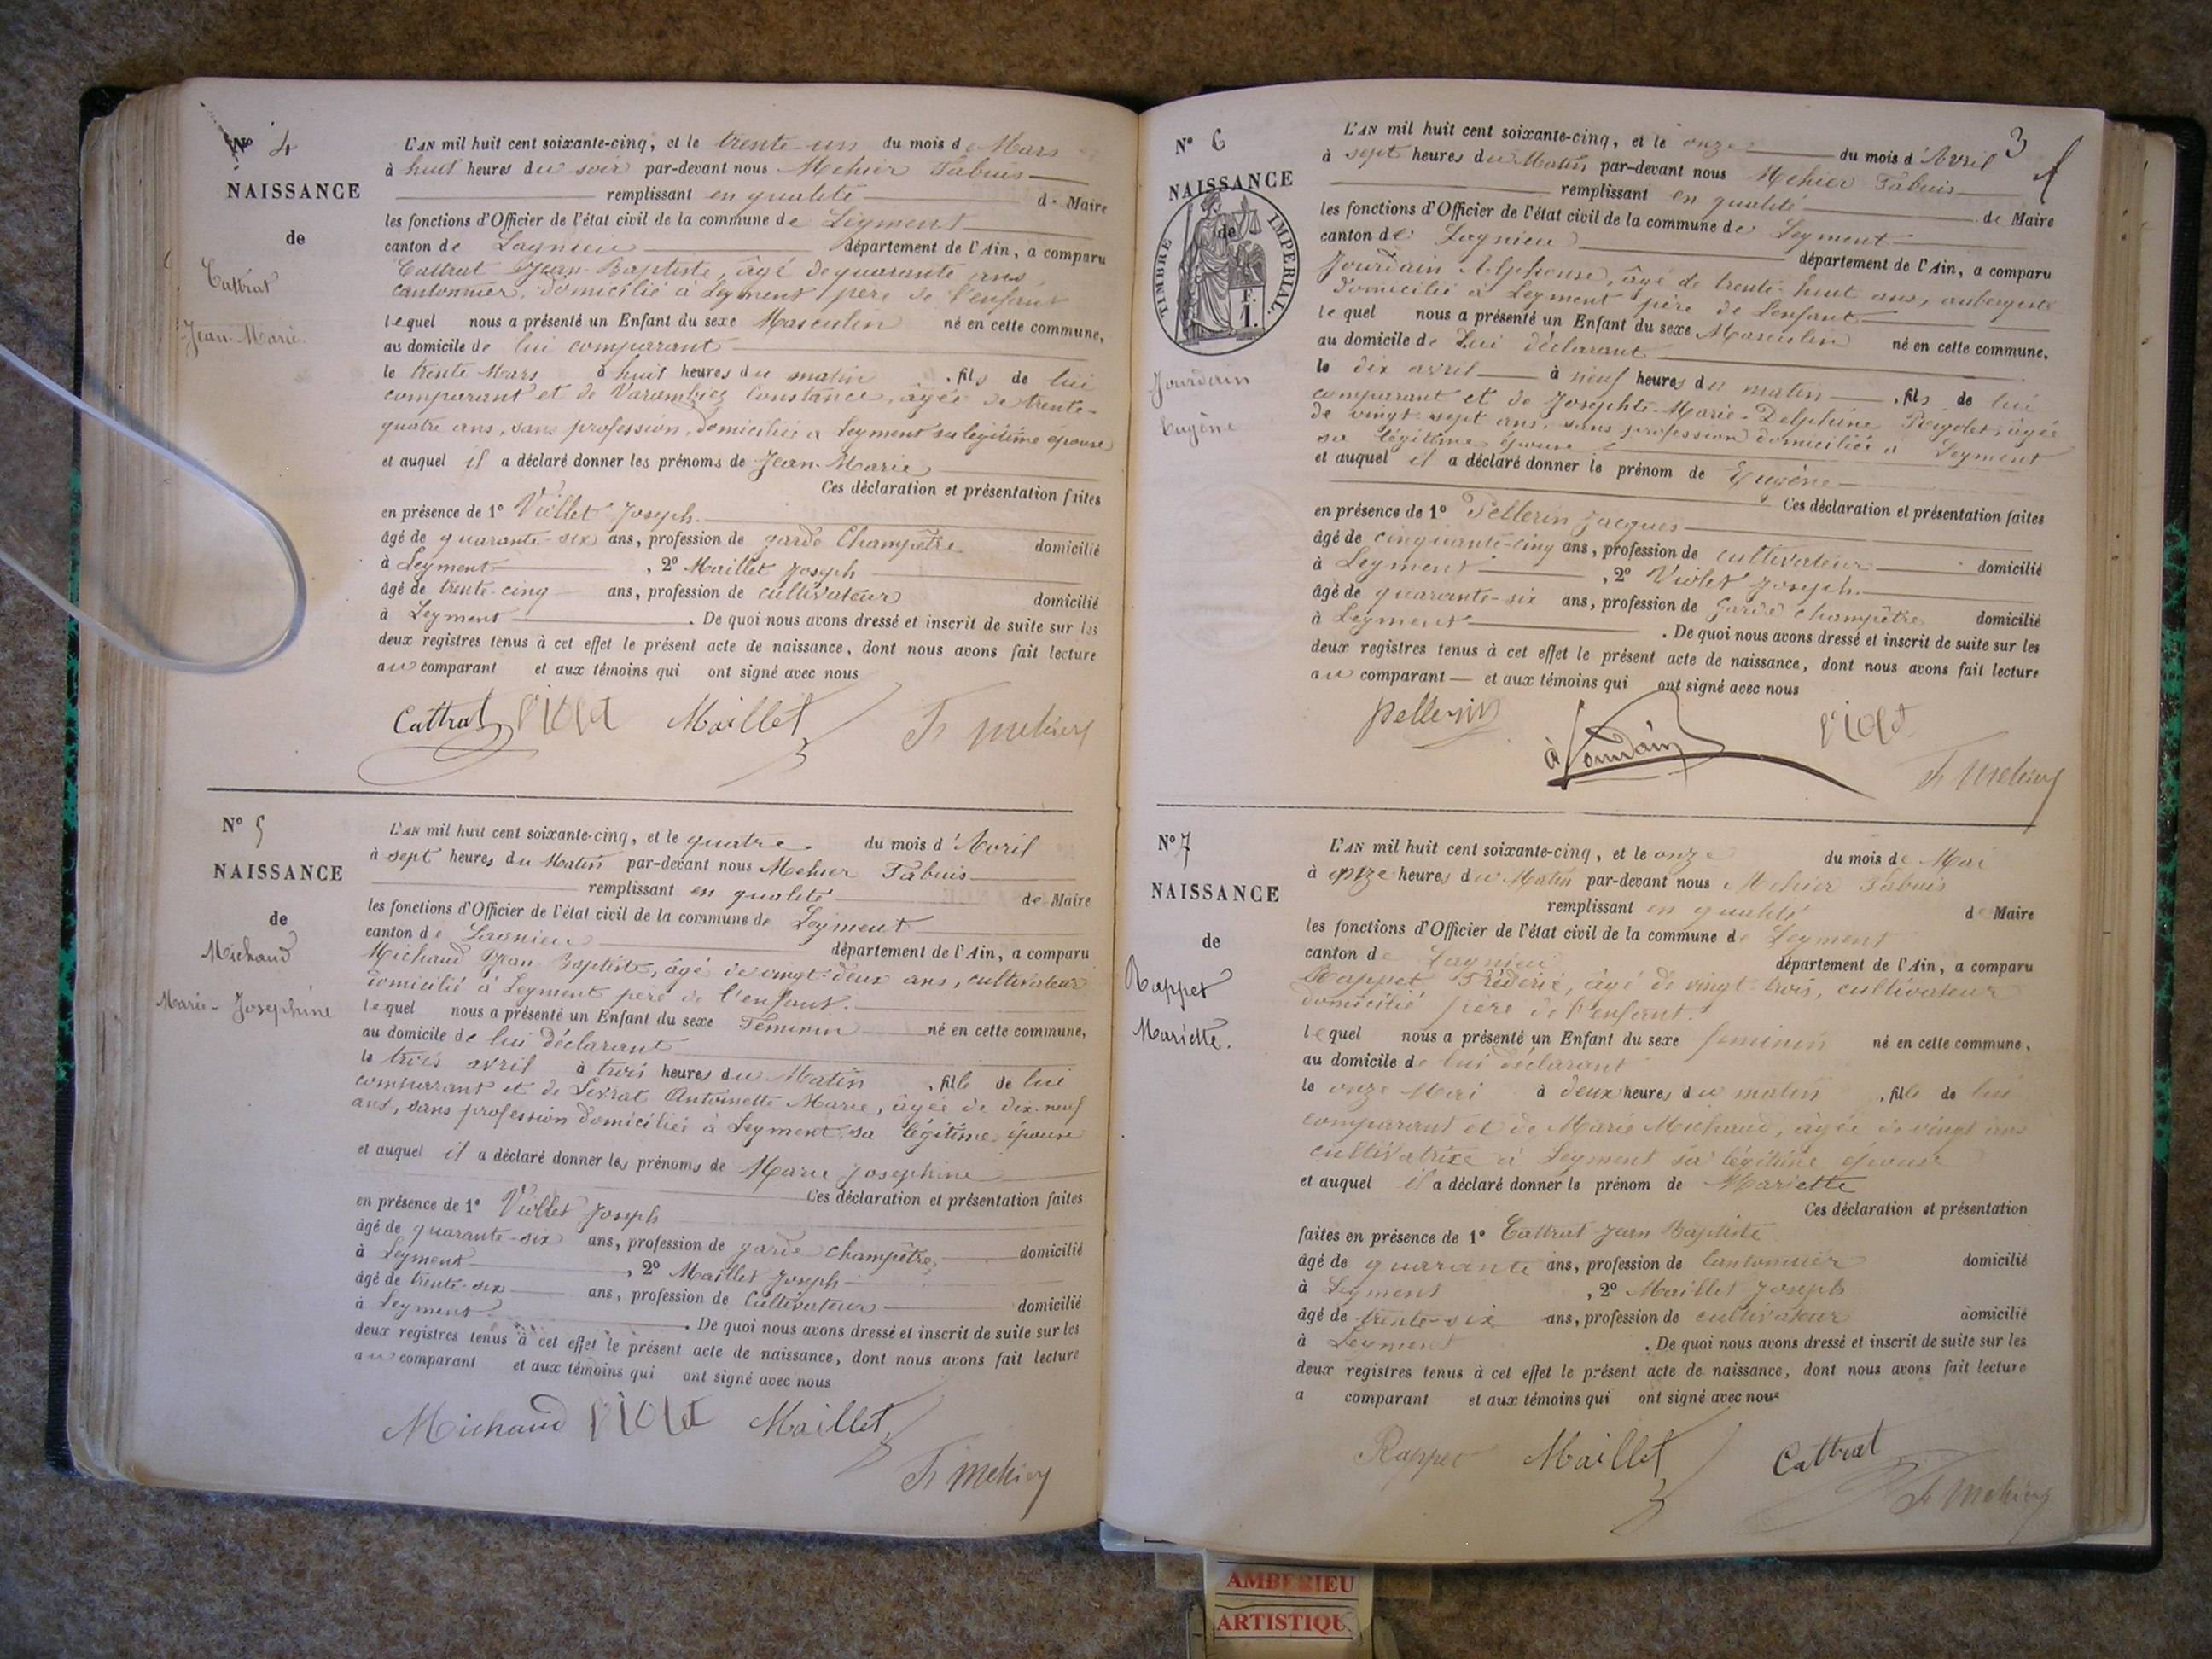 N° 4
NAISSANCE
de
Cattrat
Jean-Marie.
L'AN mil huit cent soixante-cinq, et le trente-un du mois de Mars
à huit heures du soir par-devant nous Mehier Fabius
remplissant en qualité de Maire
les fonctions d'Officier de l'état civil de la commune de Leyment
canton de Lagnieu département de l'Ain, a comparu
Cattrat Jean-Baptiste, âgé de quarante ans,
cantonnier, domicilié à Leyment père de l'enfant
lequel nous a présenté un Enfant du sexe Masculin né en cette commune,
au domicile de lui comparant
le trente Mars à huit heures du matin, fils de lui
comparant et de Varambiez Constance, âgée de trente-
quatre ans, sans profession, domiciliée à Leyment sa légitime épouse
et auquel il a déclaré donner les prénoms de Jean-Marie
Ces déclaration et présentation faites
en présence de 1° Viollet Joseph
âgé de quarante-six ans, profession de garde Champêtre domicilié
à Leyment, 2° Maillet Joseph
âgé de trente-cinq ans, profession de cultivateur domicilié
à Leyment. De quoi nous avons dressé et inscrit de suite sur les
deux registres tenus à cet effet le présent acte de naissance, dont nous avons fait lecture
au comparant et aux témoins qui ont signé avec nous
Cattrat Violet Maillet F. Mehier
N° 5
NAISSANCE
de
Michaud
Marie-Josephine
L'AN mil huit cent soixante-cinq, et le quatre du mois d'Avril
à sept heures du Matin par-devant nous Mehier Fabius
remplissant en qualité de Maire
les fonctions d'Officier de l'état civil de la commune de Leyment
canton de Lagnieu département de l'Ain, a comparu
Michaud Jean-Baptiste, âgé de vingt-deux ans, cultivateur
domicilié à Leyment père de l'enfant.
lequel nous a présenté un Enfant du sexe Féminin né en cette commune,
au domicile de lui déclarant
le trois avril à trois heures du Matin, fille de lui
comparant et de Antoinette Marie, âgée de dix-neuf
ans, sans profession domiciliée à Leyment sa légitime épouse
et auquel il a déclaré donner les prénoms de Marie Josephine
Ces déclaration et présentation faites
en présence de 1° Viollet Joseph
âgé de quarante-six ans, profession de garde champêtre domicilié
à Leyment, 2° Maillet Joseph
âgé de trente-six ans, profession de Cultivateur domicilié
à Leyment. De quoi nous avons dressé et inscrit de suite sur les
deux registres tenus à cet effet le présent acte de naissance, dont nous avons fait lecture
au comparant et aux témoins qui ont signé avec nous
Michaud Violet Maillet F. Mehier
3
N° 6
NAISSANCE
de
TIMBRE IMPERIAL
F.
1.
Jourdain
Eugène
L'AN mil huit cent soixante-cinq, et le onze du mois d'Avril
à sept heures du Matin par-devant nous Mehier Fabius
remplissant en qualité de Maire
les fonctions d'Officier de l'état civil de la commune de Leyment
canton de Lagnieu département de l'Ain, a comparu
Jourdain Alphonse, âgé de trente-huit ans, aubergiste
domicilié à Leyment père de l'enfant
lequel nous a présenté un Enfant du sexe Masculin né en cette commune,
au domicile de Lui déclarant
le dix avril à neuf heures du matin, fils de lui
comparant et de Josephte-Marie-Delphine, âgée
de vingt-sept ans, sans profession domiciliée à Leyment
sa légitime épouse
et auquel il a déclaré donner le prénom de Eugène
Ces déclaration et présentation faites
en présence de 1° Pellerin Jacques
âgé de cinquante-cinq ans, profession de cultivateur domicilié
à Leyment, 2° Violet Joseph
âgé de quarante-six ans, profession de Garde champêtre domicilié
à Leyment. De quoi nous avons dressé et inscrit de suite sur les
deux registres tenus à cet effet le présent acte de naissance, dont nous avons fait lecture
au comparant et aux témoins qui ont signé avec nous
Pellerin à Jourdain Violet
F. Mehier
N° 7
NAISSANCE
de
Rappet
Mariette.
L'AN mil huit cent soixante-cinq, et le onze du mois de Mai
à onze heures du Matin par-devant nous Mehier Fabius
remplissant en qualité de Maire
les fonctions d'Officier de l'état civil de la commune de Leyment
canton de Lagnieu département de l'Ain, a comparu
Rappet Fréderic, âgé de vingt-trois, cultivateur
domicilié père de l'enfant.
lequel nous a présenté un Enfant du sexe feminin né en cette commune,
au domicile de lui déclarant
le onze Mai à deux heures du matin, fille de lui
comparant et de Marie Michaud, âgée de vingt ans
cultivatrice à Leyment sa légitime épouse
et auquel il a déclaré donner le prénom de Mariette
Ces déclaration et présentation
faites en présence de 1° Cattrat Jean Baptiste
âgé de quarante ans, profession de Cantonnier domicilié
à Leyment, 2° Maillet Joseph
âgé de trente-six ans, profession de cultivateur domicilié
à Leyment. De quoi nous avons dressé et inscrit de suite sur les
deux registres tenus à cet effet le présent acte de naissance, dont nous avons fait lecture
a comparant et aux témoins qui ont signé avec nous
Rappet Maillet Cattrat
F. Mehier
AMBERIEU
ARTISTIQU